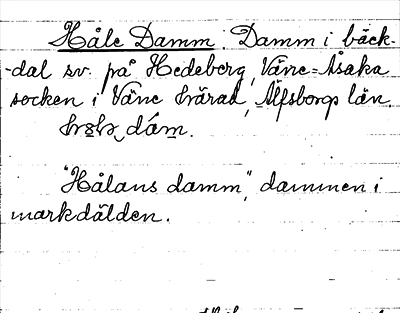 Håle Damm. Damm i bäck-
-dal sv. på Hedeberg, Väne-Åsaka
socken i Väne härad, Älfsborgs län.
dám.
"Hålans damm", dammen i
markdälden.